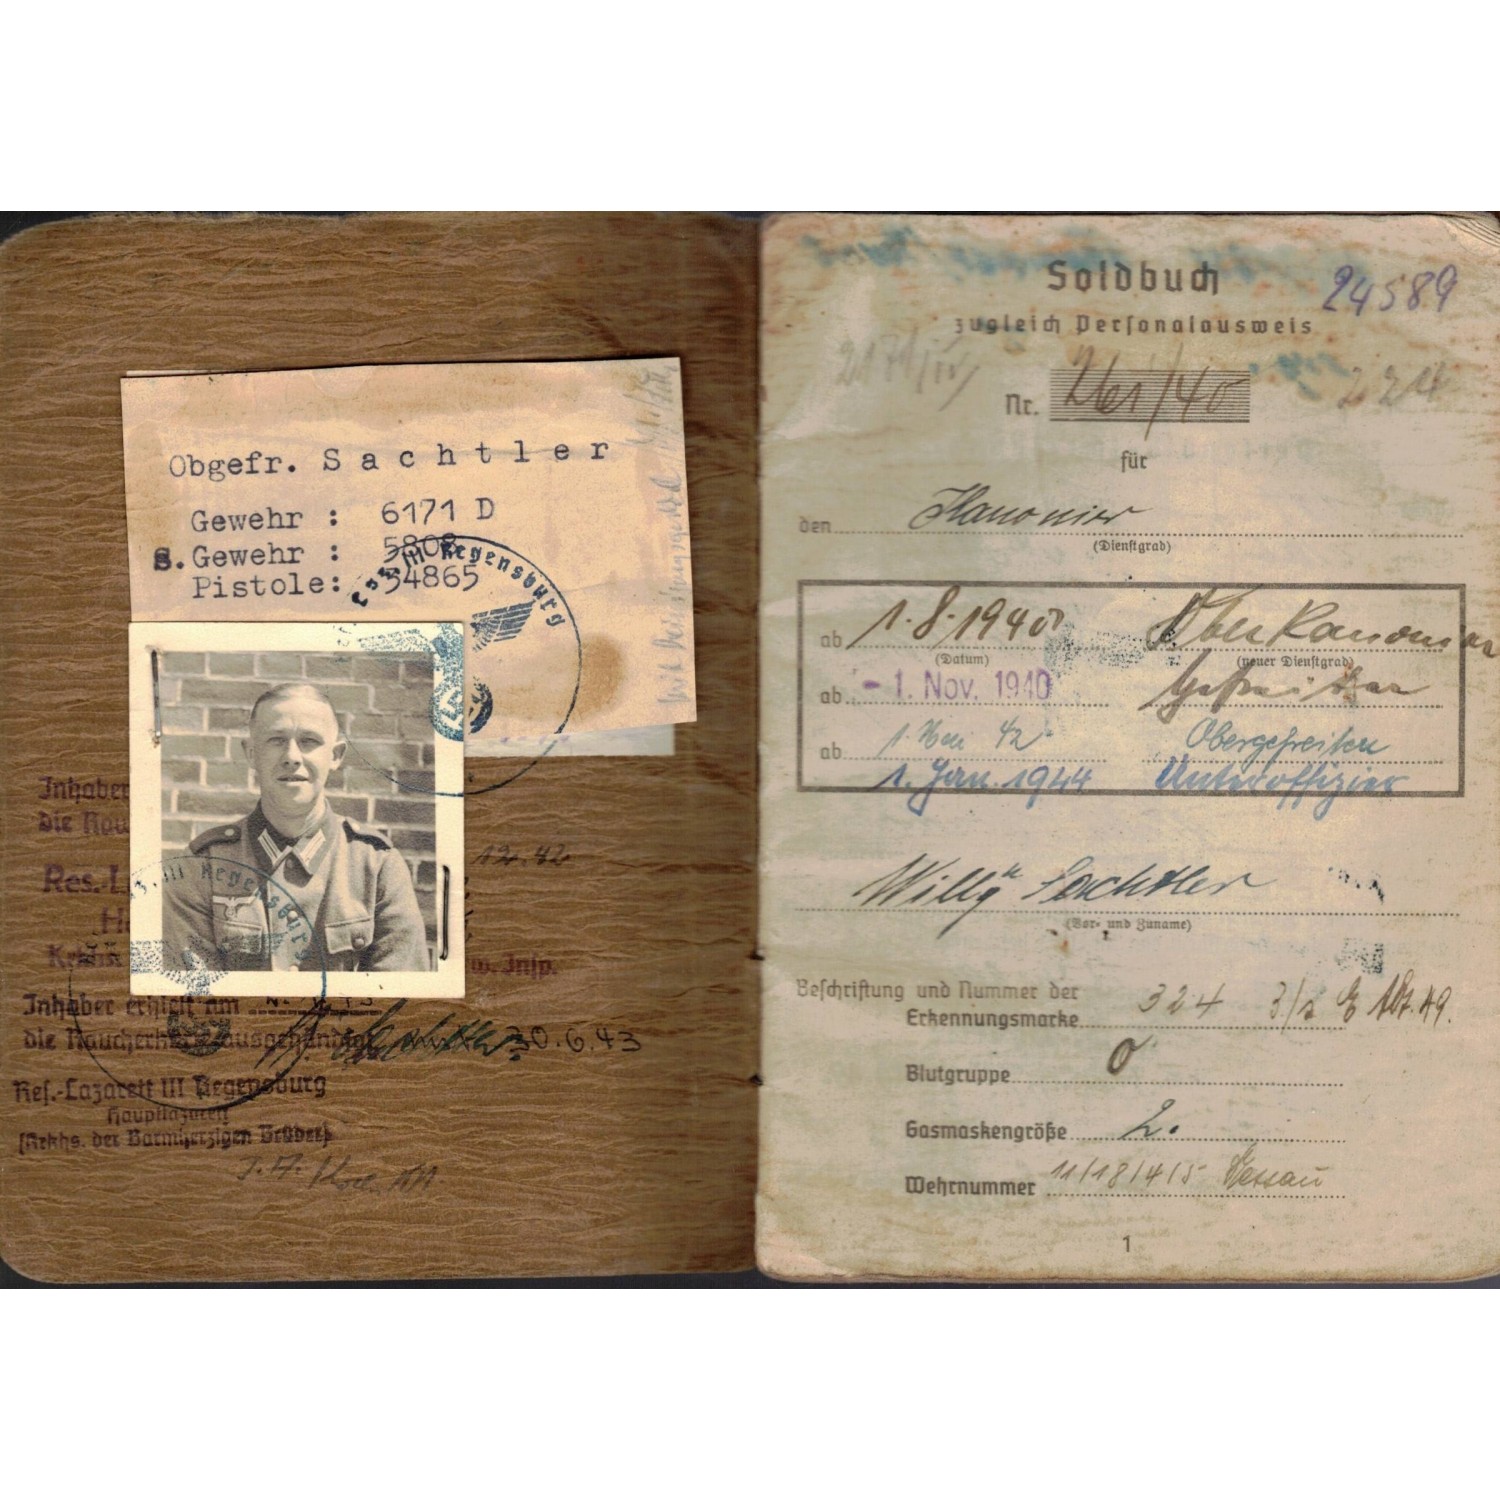 Obgefr. Sachtler
Gewehr : 6171 D
S. Gewehr : 5808
Pistole: 34865
III Regensburg
Inhaber
die Rau
12.42
Res.-L
w. Insp.
Inhaber erhielt am
die Raucherkarte ausgehändigt 30.6.43
Res.-Lazarett III Regensburg
Hauptlazarett
(Krkhs. der Barmherzigen Brüder)
J. A.
Soldbuch
24589
zugleich Personalausweis
224
Nr. 261/40
für
den Kanonier
(Dienstgrad)
ab 1.8.1940 Oberkanonier
(Datum) (neuer Dienstgrad)
ab - 1. Nov. 1940 Gefreiter
ab 1. Mai 42 Obergefreiten
1. Jan. 1944 Unteroffizier
Willy Sachtler
(Vor- und Zuname)
Beschriftung und Nummer der
Erkennungsmarke 324 3/s E Abt. 49.
Blutgruppe O
Gasmaskengröße 2.
Wehrnummer 11/18/4/5 Dessau
1